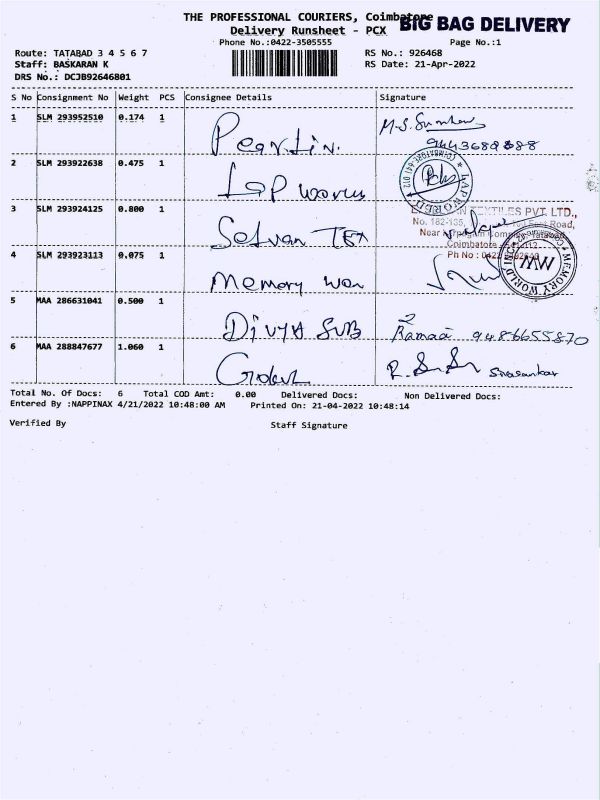 THE PROFESSIONAL COURIERS, Coimbatore
BIG BAG DELIVERY
Delivery Runsheet - PCX
Phone No.:0422-3505555
Page No.:1
Route: TATABAD 3 4 5 6 7
RS No.: 926468
Staff: BASKARAN K
RS Date: 21-Apr-2022
DRS No.: DCJB92646801
S No Consignment No Weight PCS Consignee Details Signature
1 SLM 293952510 0.174 1
2 SLM 293922638 0.475 1 Lap World
COIMBATORE-641 012 ★ LAPWORLD ★
3 SLM 293924125 0.800 1 Selvan Tex
TEXTILES PVT. LTD.,
No. 182-135, Road,
Near Tatabad
Coimbatore
Ph No : 0422
4 SLM 293923113 0.075 1 Memory
MEMORY WORLD INC
MW
5 MAA 286631041 0.500 1 Divya SUB
9486655870
6 MAA 288847677 1.060 1
Sivasankar
Total No. Of Docs: 6 Total COD Amt: 0.00 Delivered Docs: Non Delivered Docs:
Entered By :NAPPINAX 4/21/2022 10:48:00 AM Printed On: 21-04-2022 10:48:14
Verified By Staff Signature